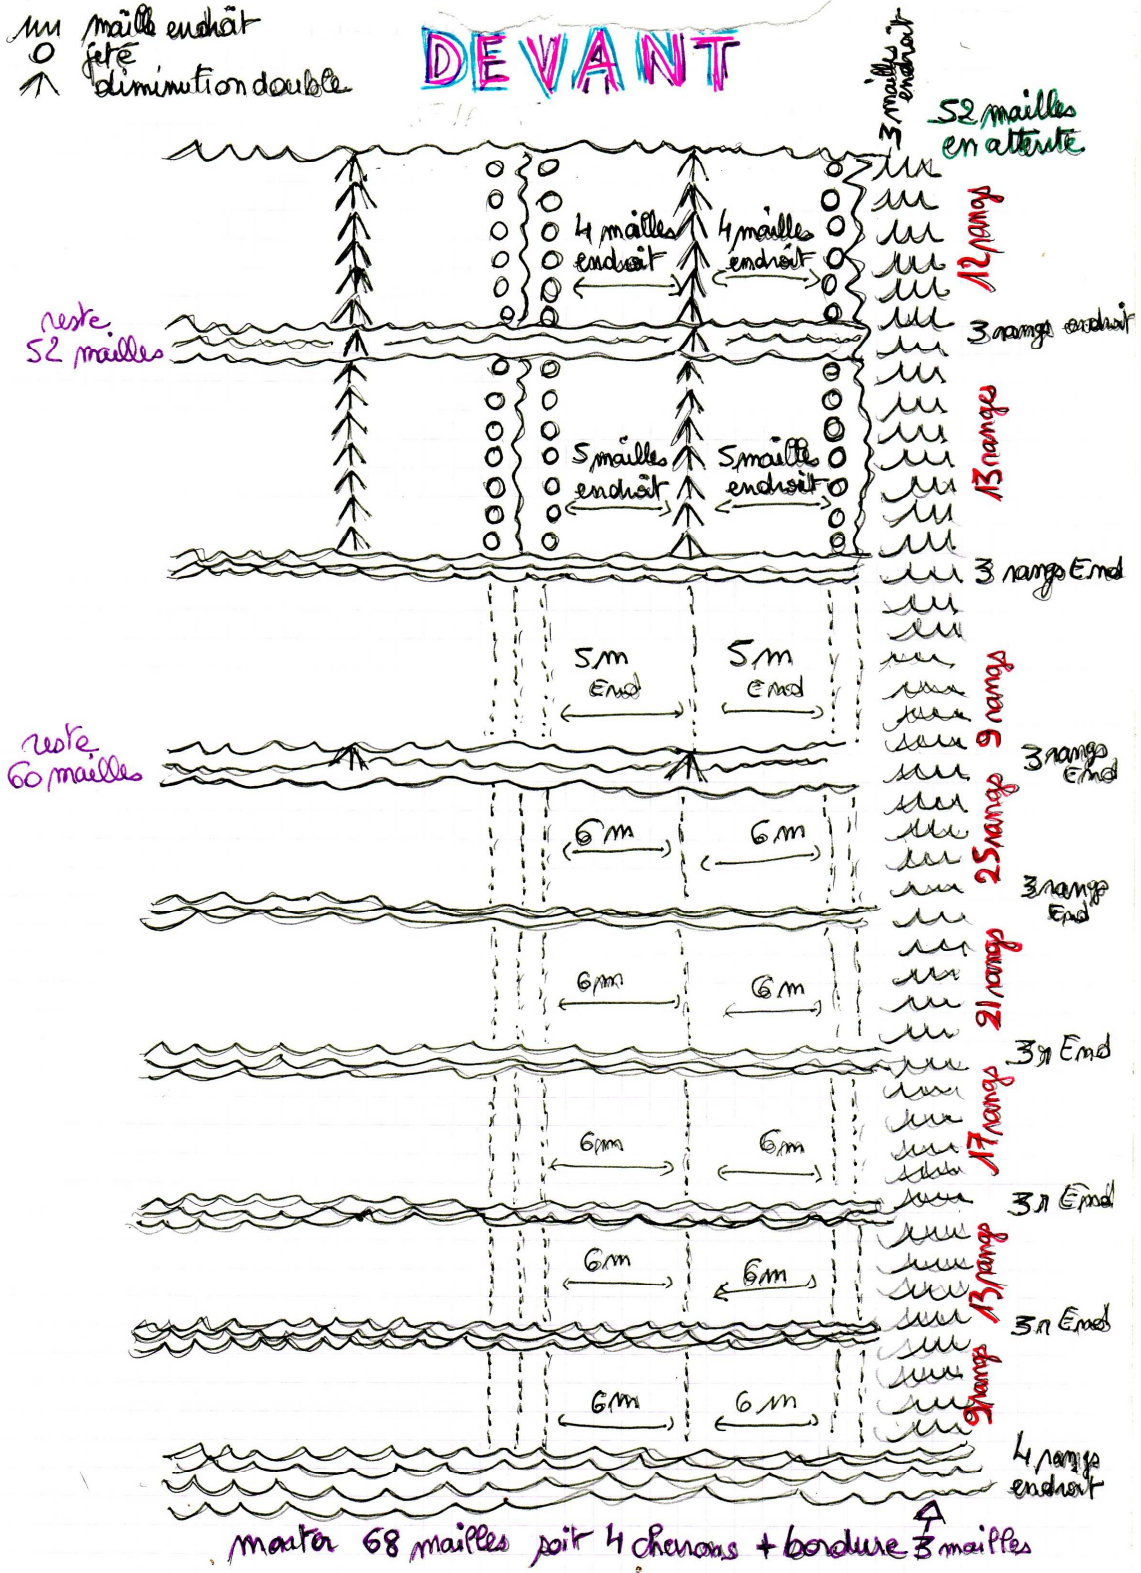 maille endroit
O jeté
diminution double
DEVANT
3 mailles
endroit
52 mailles
en attente
12 rangs
4 mailles
endroit
4 mailles
endroit
reste
52 mailles
3 rangs endroit
13 ranges
5 mailles
endroit
5 mailles
endroit
3 rangs End
5 m
End
5 m
End
9 rangs
reste
60 mailles
3 rangs
End
6 m
6 m
25 rangs
3 rangs
End
6 m
6 m
21 rangs
3 r End
6 m
6 m
17 rangs
3 r End
6 m
6 m
13 rangs
3 r End
6 m
6 m
9 rangs
4 rangs
endroit
monter 68 mailles soit 4 chevrons + bordure 3 mailles